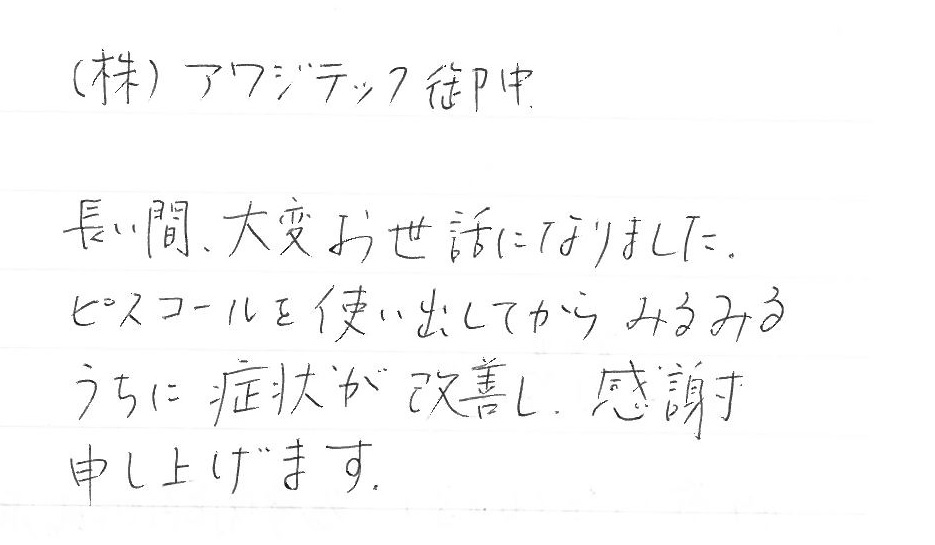 (株) アワジテック 御中
長い間、大変お世話になりました.
ピスコールを使い出してから みるみる
うちに 症状が 改善し. 感謝
申し上げます.